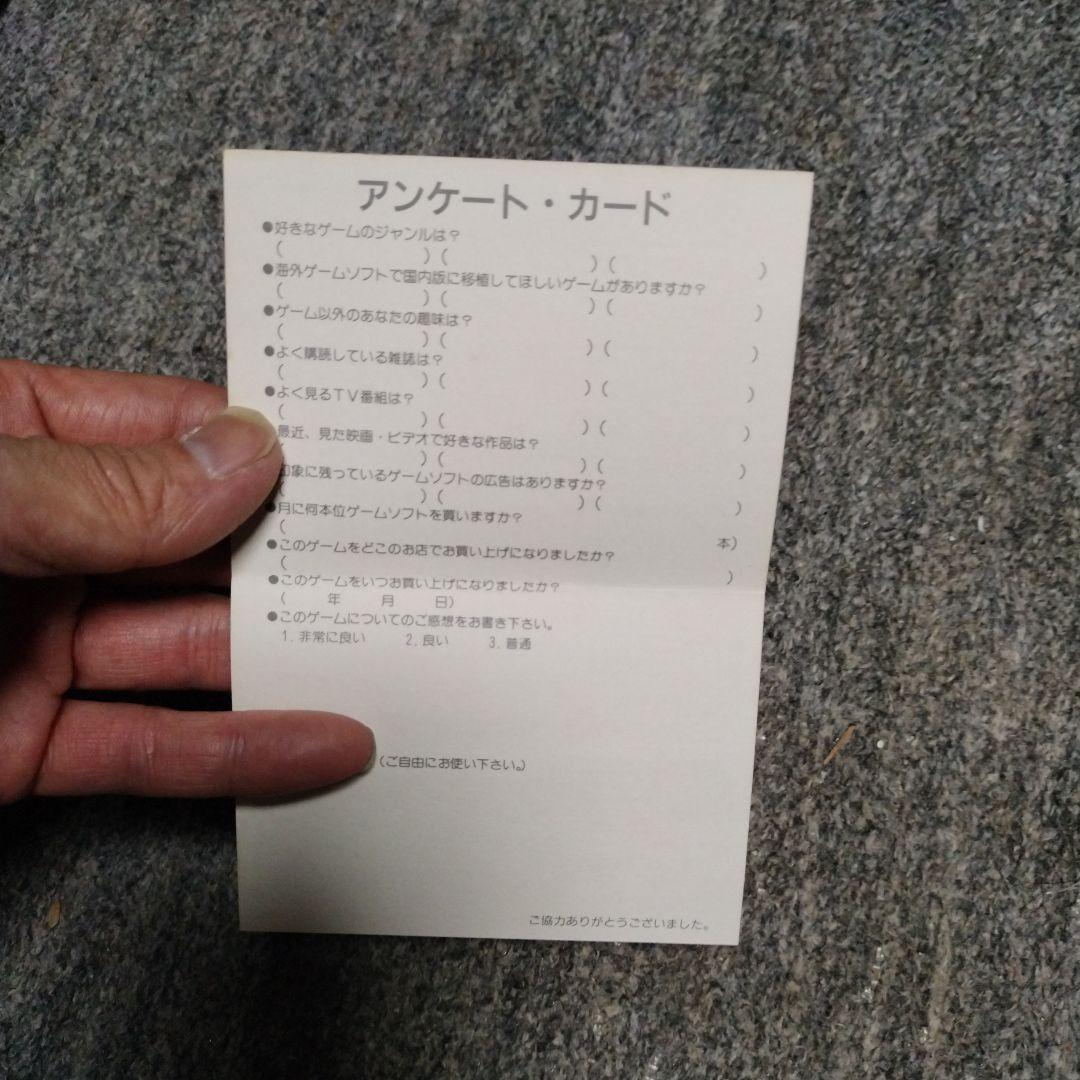 アンケート・カード
●好きなゲームのジャンルは？
(　　　　　　　　) (　　　　　　　　) (　　　　　　　　)
●海外ゲームソフトで国内版に移植してほしいゲームがありますか？
(　　　　　　　　) (　　　　　　　　) (　　　　　　　　)
●ゲーム以外のあなたの趣味は？
(　　　　　　　　) (　　　　　　　　) (　　　　　　　　)
●よく購読している雑誌は？
(　　　　　　　　) (　　　　　　　　) (　　　　　　　　)
●よく見るTV番組は？
(　　　　　　　　) (　　　　　　　　) (　　　　　　　　)
最近、見た映画・ビデオで好きな作品は？
(　　　　　　　　) (　　　　　　　　) (　　　　　　　　)
印象に残っているゲームソフトの広告はありますか？
(　　　　　　　　) (　　　　　　　　) (　　　　　　　　)
●月に何本位ゲームソフトを買いますか？
(　　　　　　　　本)
●このゲームをどこのお店でお買い上げになりましたか？
(　　　　　　　　)
●このゲームをいつお買い上げになりましたか？
(　　年　　月　　日)
●このゲームについてのご感想をお書き下さい。
1. 非常に良い　　2. 良い　　3. 普通
(ご自由にお使い下さい。)
ご協力ありがとうございました。